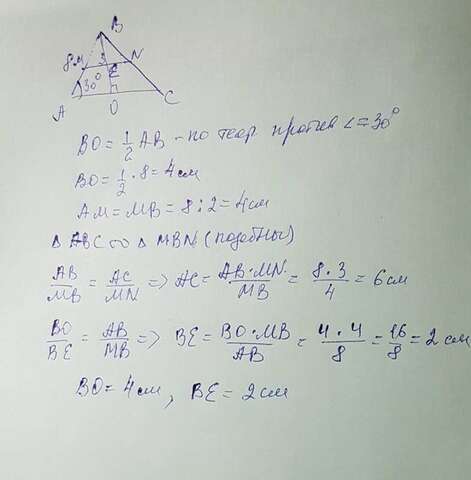 B
8 см N
3
E
30°
A O C
BO = 1/2 AB - по теор. против ∠ = 30°
BO = 1/2 · 8 = 4 см
AM = MB = 8 : 2 = 4 см
Δ ABC ∾ Δ MBN (подобны)
AB/MB = AC/MN => AC = AB·MN/MB = 8·3/4 = 6 см
BO/BE = AB/MB => BE = BO·MB/AB = 4·4/8 = 16/8 = 2 см
BO = 4 см, BE = 2 см